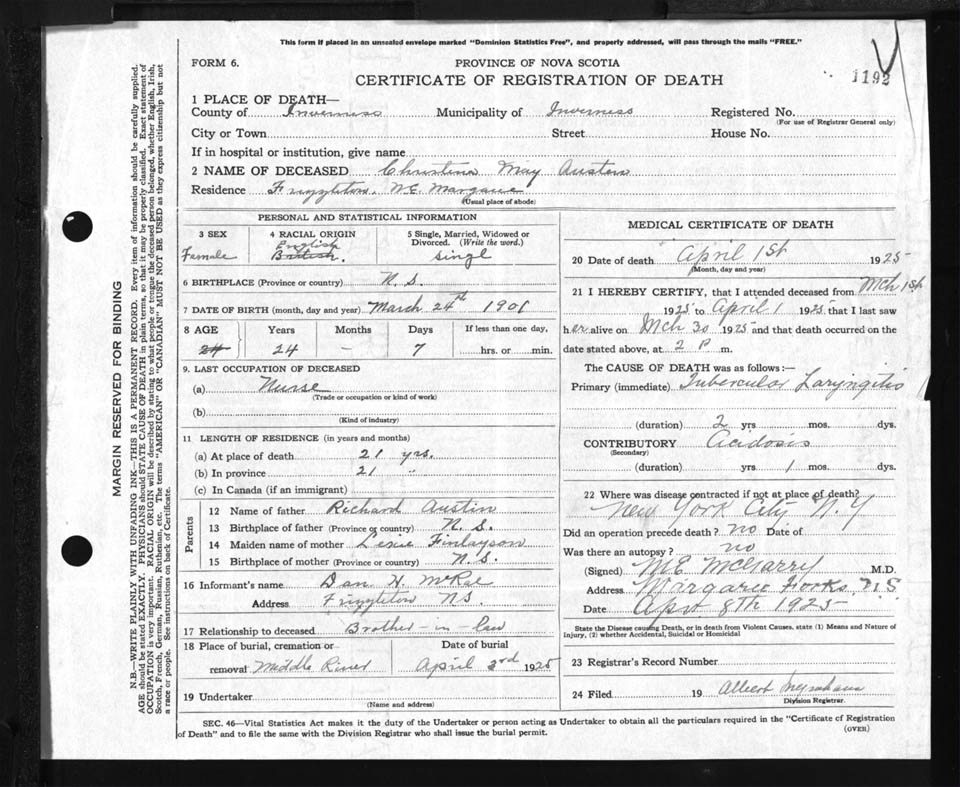 This form if placed in an unsealed envelope marked "Dominion Statistics Free", and properly addressed, will pass through the mails "FREE."
FORM 6.
PROVINCE OF NOVA SCOTIA
CERTIFICATE OF REGISTRATION OF DEATH
1192
1 PLACE OF DEATH—
County of Inverness Municipality of Inverness Registered No.
(For use of Registrar General only)
City or Town Street House No.
If in hospital or institution, give name
2 NAME OF DECEASED Christina May Austen
Residence N.E. Margaree
(Usual place of abode)
PERSONAL AND STATISTICAL INFORMATION
3 SEX 4 RACIAL ORIGIN 5 Single, Married, Widowed or Divorced. (Write the word.)
Female English British. singl
6 BIRTHPLACE (Province or country) N.S.
7 DATE OF BIRTH (month, day and year) March 24th 1901
8 AGE Years Months Days If less than one day,
24 24 — 7 hrs. or min.
9. LAST OCCUPATION OF DECEASED
(a) Nurse
(Trade or occupation or kind of work)
(b)
(Kind of industry)
11 LENGTH OF RESIDENCE (in years and months)
(a) At place of death 21 yrs.
(b) In province 21 "
(c) In Canada (if an immigrant)
Parents
12 Name of father Richard Austin
13 Birthplace of father (Province or country) N.S.
14 Maiden name of mother Finlayson
15 Birthplace of mother (Province or country) N.S.
16 Informant's name Dan H. McRae
Address N.S.
17 Relationship to deceased Brother-in-law
18 Place of burial, cremation or removal Middle River
Date of burial April 3rd 1925
19 Undertaker
(Name and address)
MEDICAL CERTIFICATE OF DEATH
20 Date of death April 1st 1925
(Month, day and year)
21 I HEREBY CERTIFY, that I attended deceased from Mch 1st
1925 to April 1 1925 that I last saw
her alive on Mch 30 1925 and that death occurred on the
date stated above, at 2 P m.
The CAUSE OF DEATH was as follows:—
Primary (immediate) Tubercular Laryngitis
(duration) 2 yrs mos. dys.
CONTRIBUTORY Acidosis
(Secondary)
(duration) yrs 1 mos. dys.
22 Where was disease contracted if not at place of death?
New York City N.Y
Did an operation precede death? no Date of
Was there an autopsy? no
(Signed) M.E. McGarry M.D.
Address Margaree Forks N.S.
Date April 8th 1925
State the Disease causing Death, or in death from Violent Causes, state (1) Means and Nature of
Injury, (2) whether Accidental, Suicidal or Homicidal
23 Registrar's Record Number
24 Filed 19 Albert Ingraham
Division Registrar.
SEC. 46—Vital Statistics Act makes it the duty of the Undertaker or person acting as Undertaker to obtain all the particulars required in the "Certificate of Registration
of Death" and to file the same with the Division Registrar who shall issue the burial permit.
(OVER)
MARGIN RESERVED FOR BINDING
N.B.—WRITE PLAINLY WITH UNFADING INK—THIS IS A PERMANENT RECORD. Every item of information should be carefully supplied.
AGE should be stated EXACTLY. PHYSICIANS should STATE CAUSE OF DEATH in plain terms, so that it may be properly classified. Exact statement of
OCCUPATION is very important. RACIAL ORIGIN will be described by stating to what people or tongue the deceased person belonged, whether English, Irish,
Scotch, French, German, Russian, Ruthenian, etc. The terms "AMERICAN" OR "CANADIAN" MUST NOT BE USED as they express citizenship but not
a race or people. See instructions on back of Certificate.